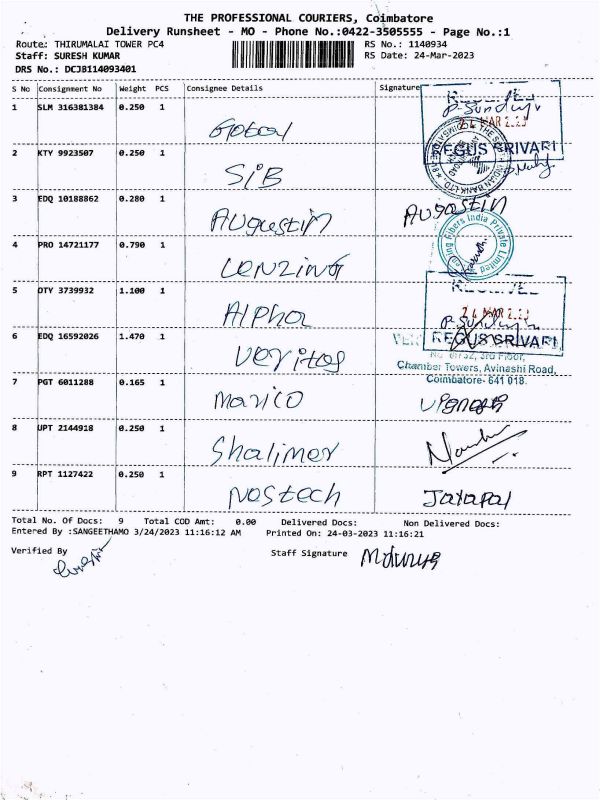 THE PROFESSIONAL COURIERS, Coimbatore
Delivery Runsheet - MO - Phone No.:0422-3505555 - Page No.:1
Route: THIRUMALAI TOWER PC4 RS No.: 1140934
Staff: SURESH KUMAR RS Date: 24-Mar-2023
DRS No.: DCJB114093401
S No Consignment No Weight PCS Consignee Details Signature
1 SLM 316381384 0.250 1
RECEIVED
24 MAR 2023
REGUS SRIVARI
2 KTY 9923507 0.250 1
SIB
3 EDQ 10188862 0.280 1
Augustin Augustin
4 PRO 14721177 0.790 1
Lenzing Fibers India Private Limited
LENZING
5 DTY 3739932 1.100 1
RECEIVED
24 MAR 2023
Alpha
REGUS SRIVARI
6 EDQ 16592026 1.470 1
Veritas
3rd Floor,
Chamber Towers, Avinashi Road,
Coimbatore- 641 018.
7 PGT 6011288 0.165 1
Marico
8 UPT 2144918 0.250 1
Shalimer
9 RPT 1127422 0.250 1
Nostech Jayapal
Total No. Of Docs: 9 Total COD Amt: 0.00 Delivered Docs: Non Delivered Docs:
Entered By :SANGEETHAMO 3/24/2023 11:16:12 AM Printed On: 24-03-2023 11:16:21
Verified By Staff Signature